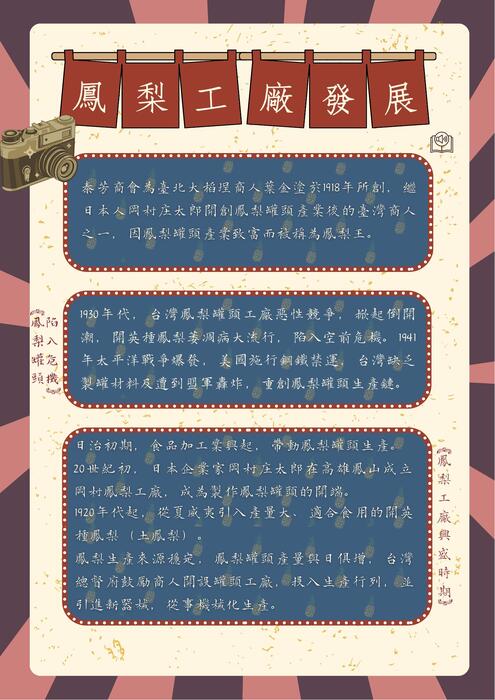 鳳梨工廠發展
泰芳商會為臺北大稻埕商人葉金塗於1918年所創，繼
日本人岡村庄太郎開創鳳梨罐頭產業後的臺灣商人
之一，因鳳梨罐頭產業致富而被稱為鳳梨王。
陷入危機
鳳梨罐頭
1930年代，台灣鳳梨罐頭工廠惡性競爭，掀起倒閉
潮，開英種鳳梨萎凋病大流行，陷入空前危機。1941
年太平洋戰爭爆發，美國施行鋼鐵禁運，台灣缺乏
製罐材料及遭到盟軍轟炸，重創鳳梨罐頭生產鏈。
日治初期，食品加工業興起，帶動鳳梨罐頭生產。
20世紀初，日本企業家岡村庄太郎在高雄鳳山成立
岡村鳳梨工廠，成為製作鳳梨罐頭的開端。
1920年代起，從夏威夷引入產量大、適合食用的開英
種鳳梨（土鳳梨）。
鳳梨生產來源穩定，鳳梨罐頭產量與日俱增，台灣
總督府鼓勵商人開設罐頭工廠，投入生產行列，並
引進新器械，從事機械化生產。
鳳梨工廠興盛時期